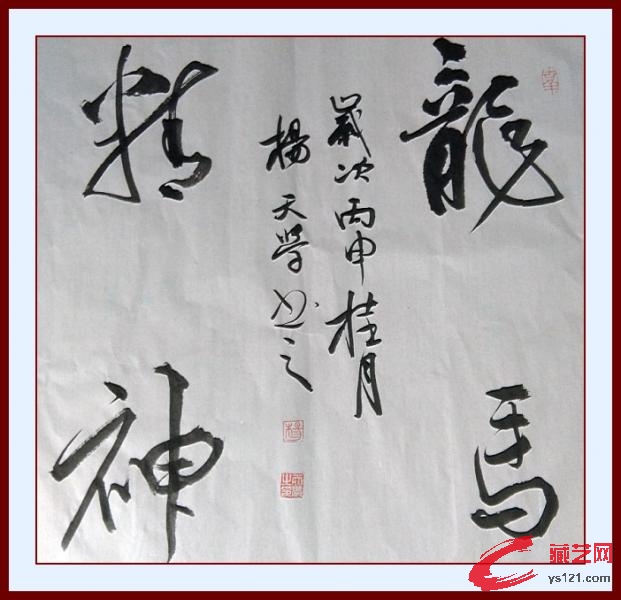 龍馬
精神
歲次丙申桂月
楊天学书之
藏艺网
ys121.com